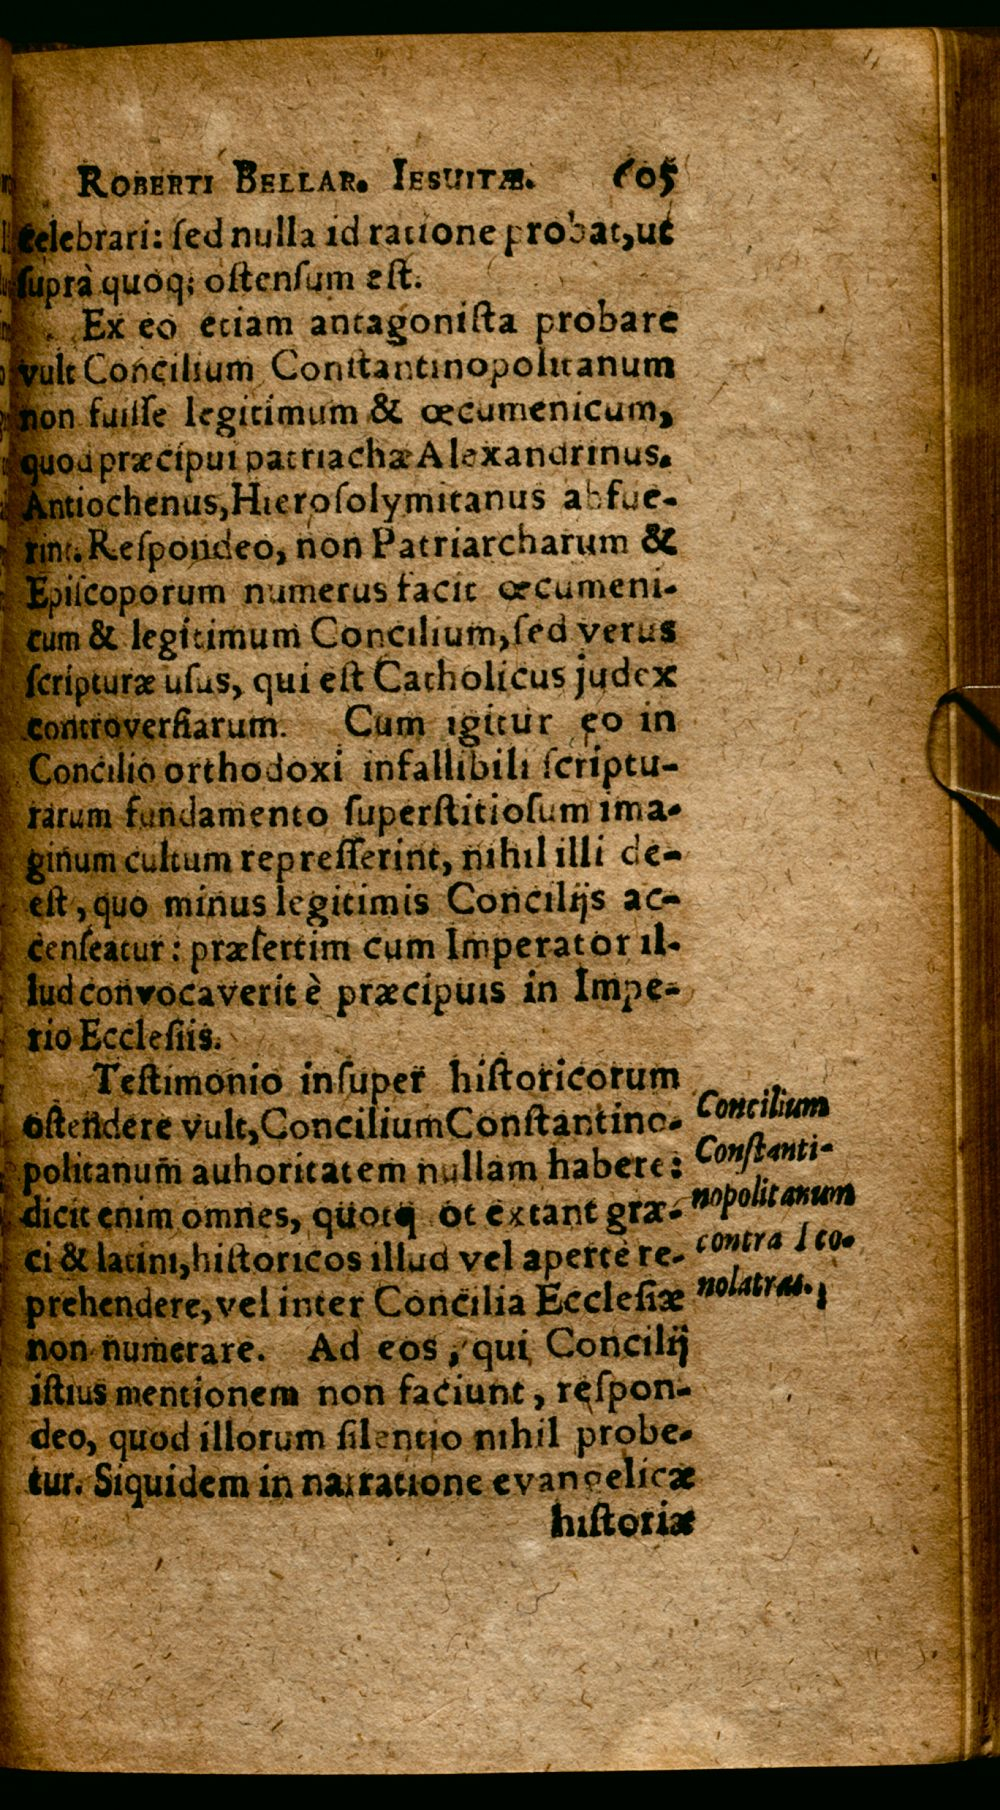 ROBERTI BELLAR. IESUITÆ. 605
celebrari: ſed nulla id ratione probat, ut
ſuprà quoq; oſtenſum eſt.
Ex eo etiam antagoniſta probare
vult Concilium Conſtantinopolitanum
non fuiſſe legitimum & œcumenicum,
quod præcipui patriachæ Alexandrinus.
Antiochenus, Hieroſolymitanus abfue-
rint. Reſpondeo, non Patriarcharum &
Epiſcoporum numerus facit œcumeni-
cum & legitimum Concilium, ſed verus
ſcripturæ uſus, qui eſt Catholicus judex
controverſiarum. Cum igitur eo in
Concilio orthodoxi infallibili ſcriptu-
rarum fundamento ſuperſtitioſum ima-
ginum cultum repreſſerint, nihil illi de-
eſt, quo minus legitimis Concilijs ac-
cenſeatur: præſertim cum Imperator il-
lud convocaverit è præcipuis in Impe-
rio Eccleſiis.
Teſtimonio inſuper hiſtoricorum
oſtendere vult, Concilium Conſtantino-
politanum auhoritatem nullam habere:
dicit enim omnes, quotq ot extant græ-
ci & latini, hiſtoricos illud vel apertè re-
prehendere, vel inter Concilia Eccleſiæ
non numerare. Ad eos, qui Concilij
iſtius mentionem non faciunt, reſpon-
deo, quod illorum ſilentio nihil probe-
tur. Siquidem in narratione evangelicæ
hiſtoriæ
Concilium
Conſtanti-
nopolitanum
contra Ico-
nolatras.